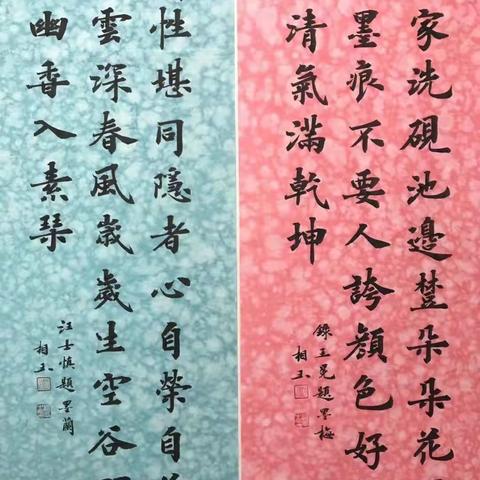 家洗硯池邊樹朵朵花
墨痕不要人誇顏色好
清氣滿乾坤
錄王冕題墨梅
相玉
性堪同隱者心自榮自
雲深春風歲歲生空谷
幽香入素琴
汪士慎題墨蘭
相玉